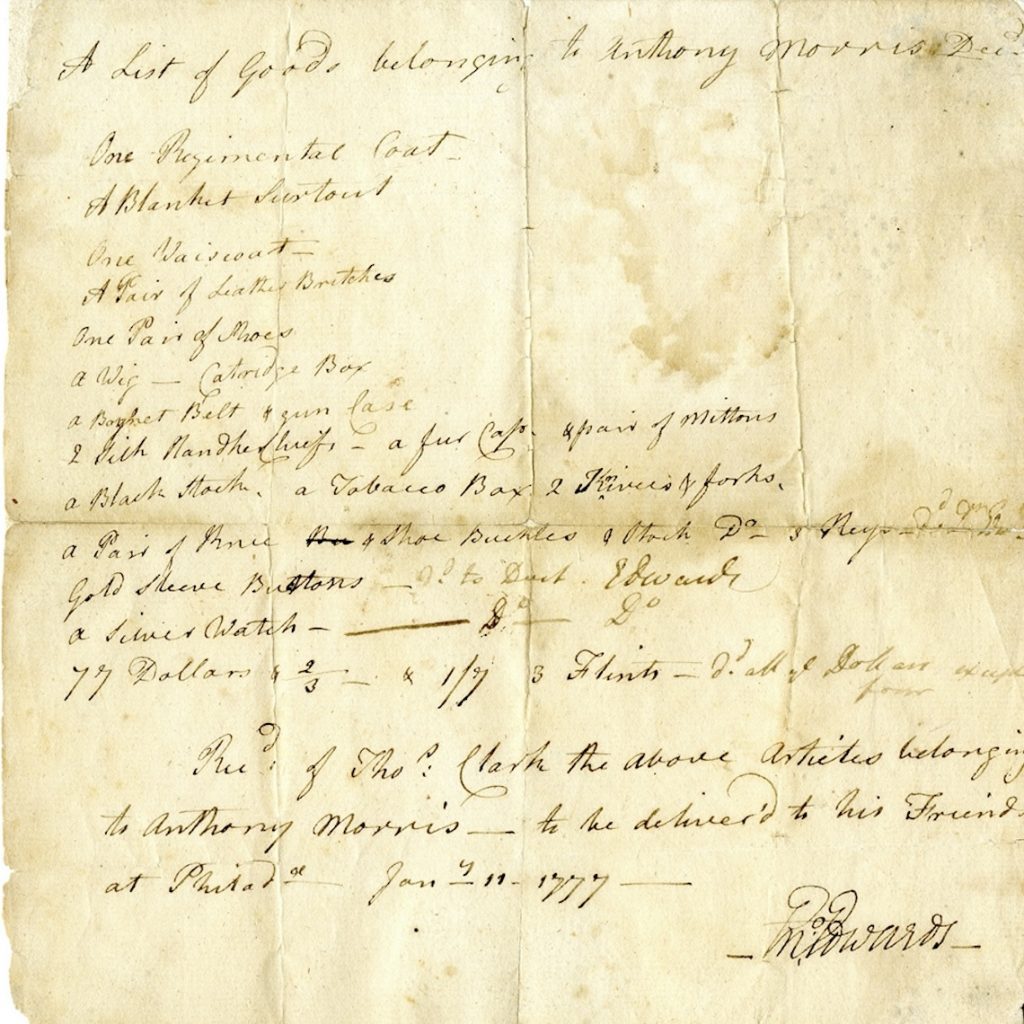 A List of Goods belonging to Anthony Morris Decd.
One Regimental Coat
A Blanket Surtout
One Vaiscoat
A Pair of Leather Britches
One Pair of Shoes
a Wig — Catridge Box
a Baynet Belt & gun Case
2 Silk Handherchiefs — a fur Cap. & pair of Mittons
a Black Stock. a Tobacco Box 2 Knives & forks.
a Pair of Knee & Shoe Buckles & Stock Do — 3 Keys
Gold Sleeve Buttons — dd to Doct. Edwards
a Silver Watch — Do — Do
77 Dollars & 2/3 — & 1/7 3 Flints — dd. all ye Dollars except four
Recd. of Thos. Clark the above Articles belonging
to Anthony Morris — to be deliver'd to his Friends
at Philade — Jany 11 - 1777 —
Edwards